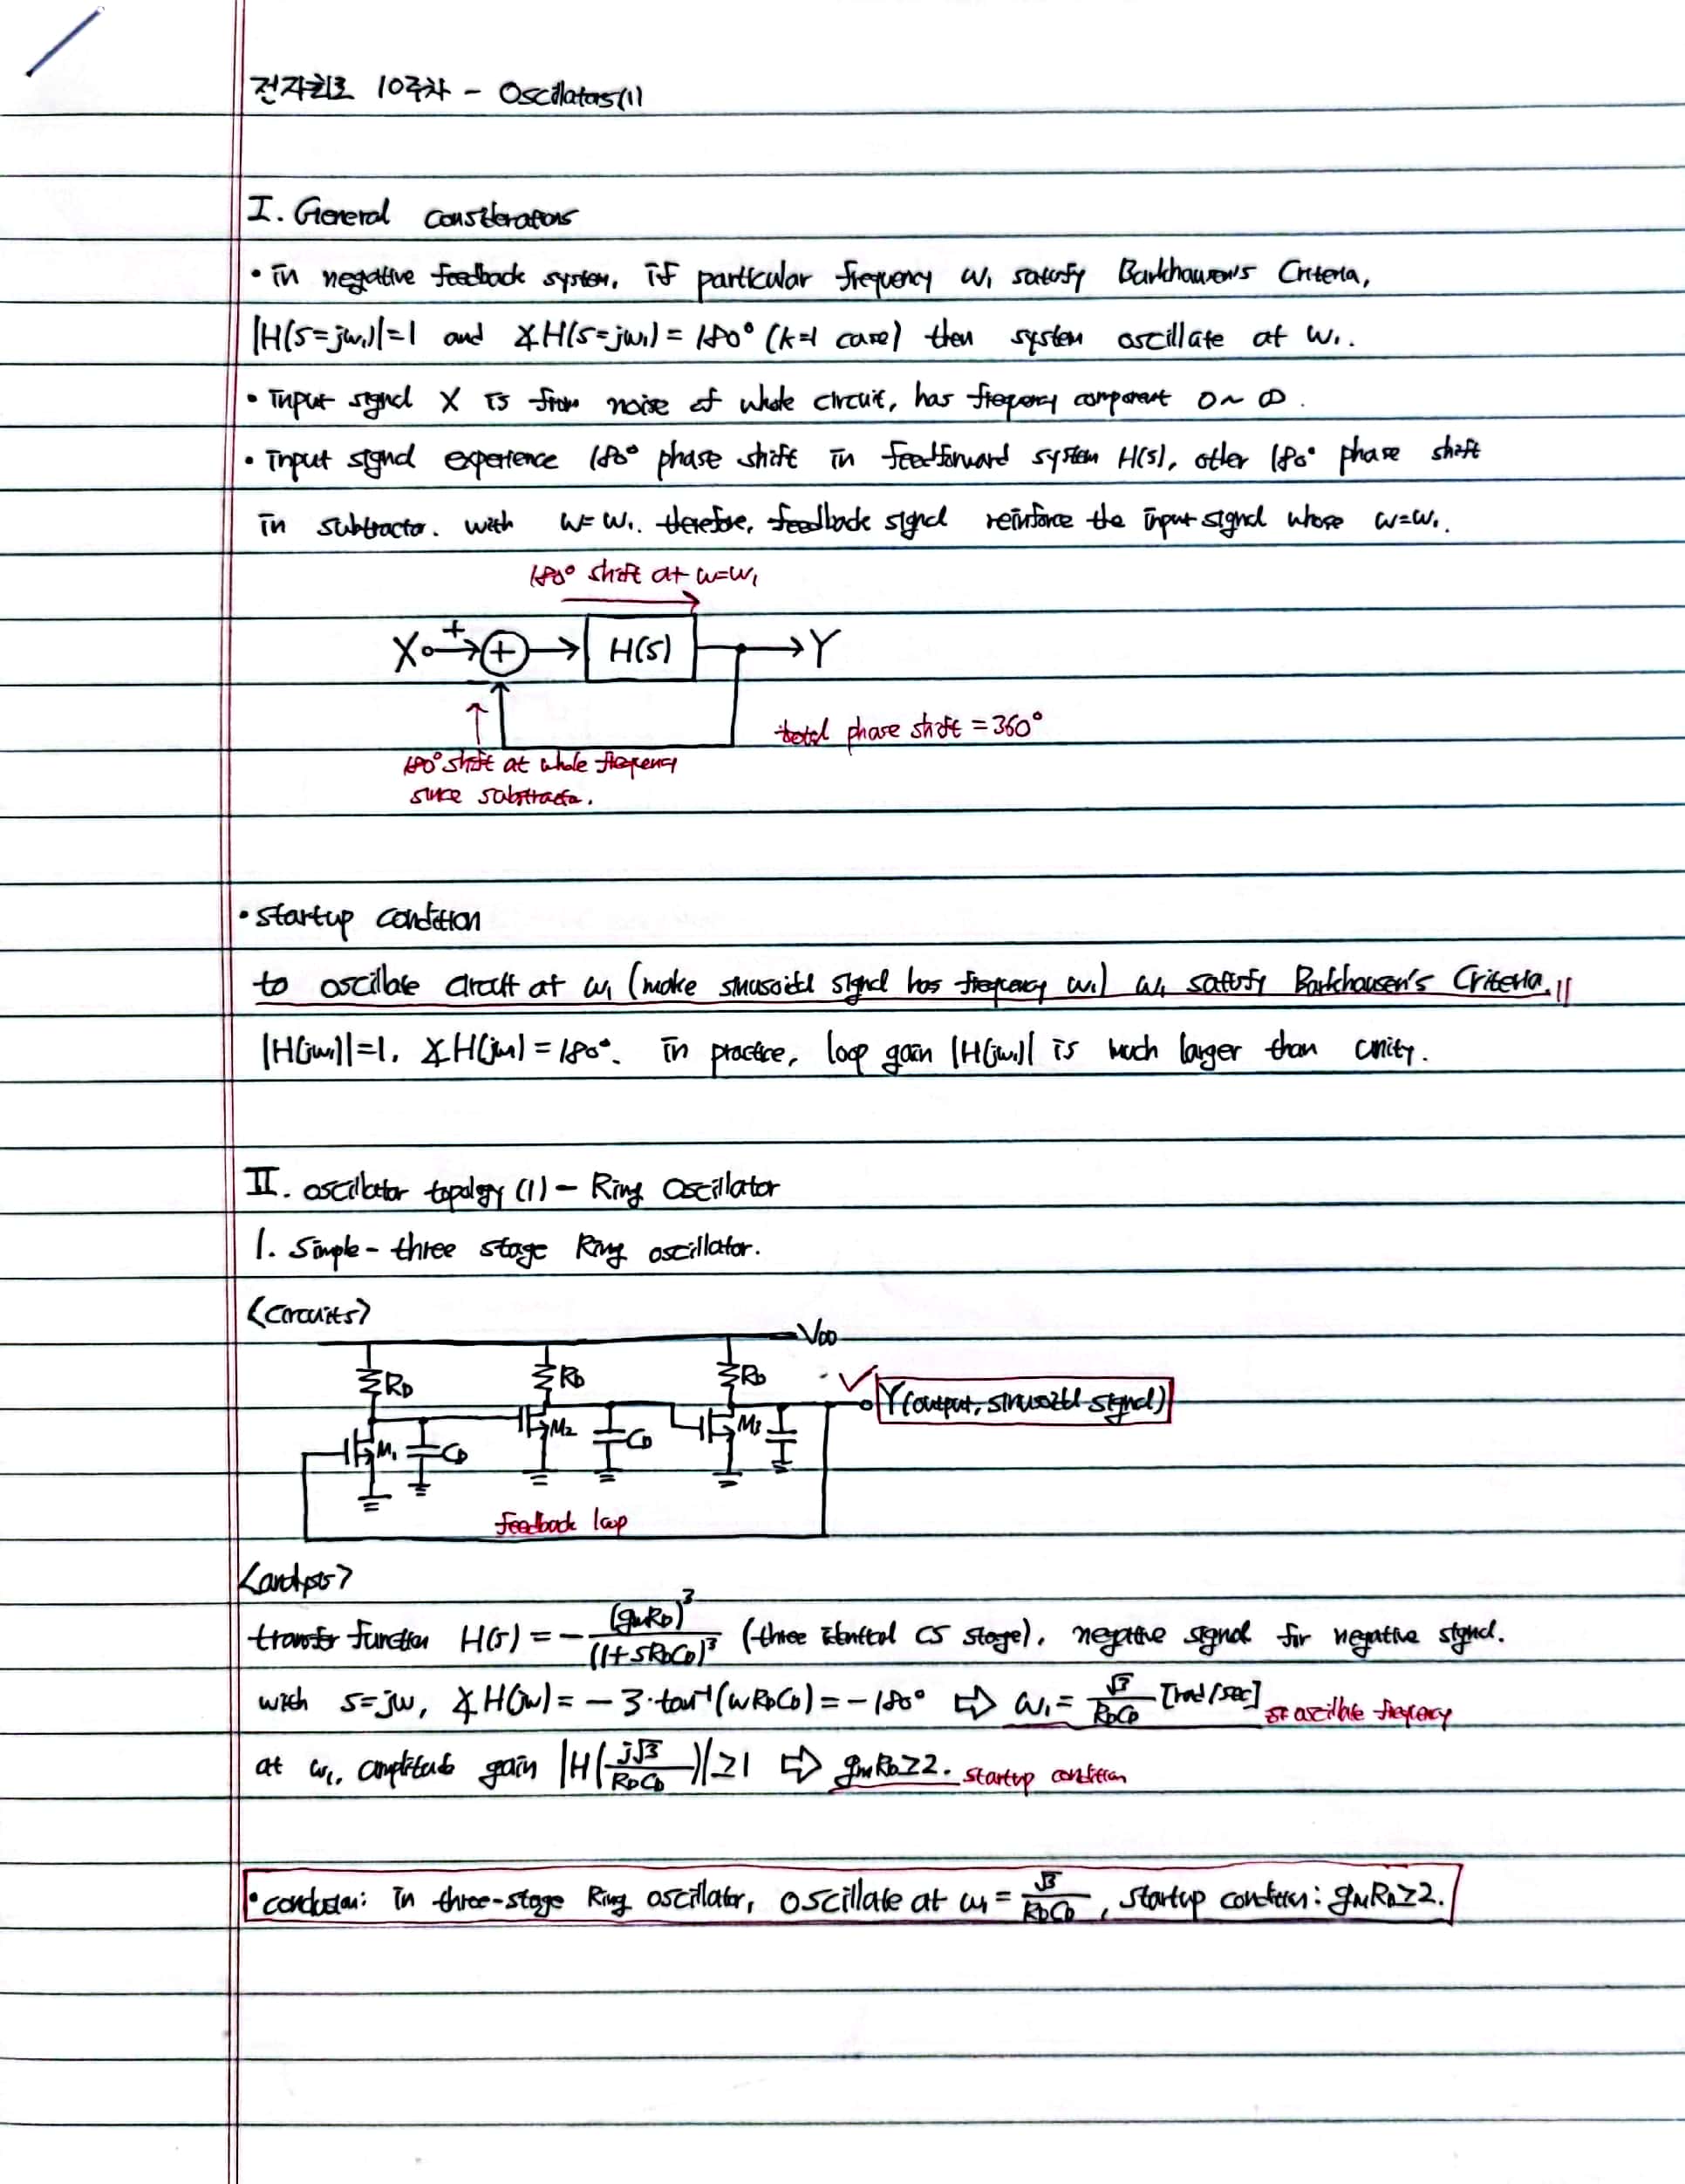 전자회로 10주차 - Oscillators(1)
I. General Considerations
• in negative feedback system, if particular frequency ω₁ satisfy Barkhausen's Criteria,
|H(s=jω₁)|=1 and ∡H(s=jω₁) = 180° (k=1 case) then system oscillate at ω₁.
• input signal X is from noise of whole circuit, has frequency component 0 ~ ∞.
• input signal experience 180° phase shift in feedforward system H(s), other 180° phase shift
in subtractor. with ω=ω₁. therefore, feedback signal reinforce the input signal whose ω=ω₁.
180° shift at ω=ω₁
X + + H(s) Y
total phase shift = 360°
180° shift at whole frequency
since subtractor.
• startup condition
to oscillate circuit at ω₁ (make sinusoidal signal has frequency ω₁) ω₁ satisfy Barkhausen's Criteria.
|H(jω₁)|=1. ∡H(jω₁) = 180°. in practice, loop gain |H(jω₁)| is much larger than unity.
II. oscillator topology (1) - Ring Oscillator
1. Simple - three stage Ring oscillator.
<Circuits>
VDD
RD RD RD
Y(output, sinusoidal signal)
M₁ CD M₂ CD M₃
feedback loop
<analysis>
transfer function H(s) = - (gmRD)³/(1+sRDCD)³ (three identical CS stage), negative signal for negative signal.
with s=jω, ∡H(jω) = -3·tan⁻¹(ωRDCD) = -180° ⇨ ω₁ = √3/RDCD [rad/sec] oscillate frequency
at ω₁, amplitude gain |H(j√3/RDCD)| ≥1 ⇨ gmRD≥2. startup condition
• conclusion: in three-stage Ring oscillator, oscillate at ω₁ = √3/RDCD, startup condition: gmRD≥2.